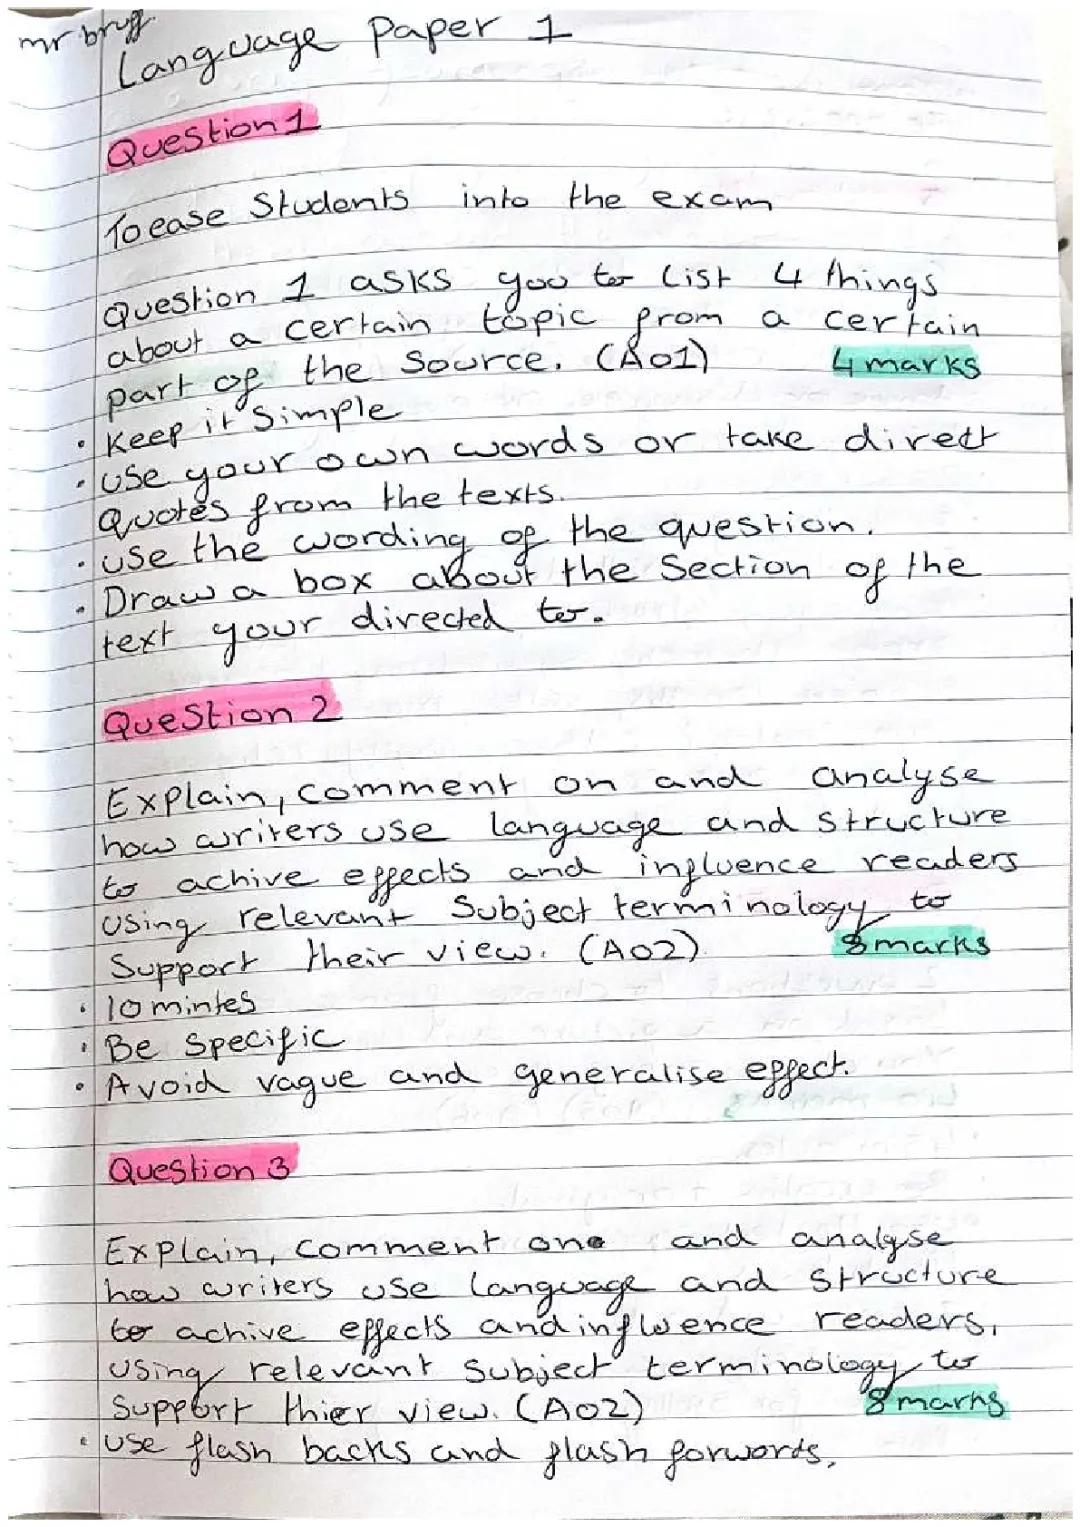 mr bruff
Language Paper 1
Question 1
To ease Students into the exam
Question 1 asks you to list 4 things
about a certain topic from a certain
part of the Source. (AO1) 4 marks
· Keep it Simple
· use your own words or take direct
Quotes from the texts.
· use the wording of the question.
· Draw a box about the Section of the
text your directed to.
Question 2
Explain, comment on and analyse
how writers use language and structure
to achive effects and influence readers
using relevant Subject terminology to
Support their view. (AO2). 8 marks
· 10 mintes
· Be Specific
· Avoid vague and generalise effect.
Question 3
Explain, comment one and analyse
how writers use language and structure
to achive effects and influence readers,
using relevant subject terminology to
Support thier view. (AO2) 8 marks
· use flash backs and flash forwords.